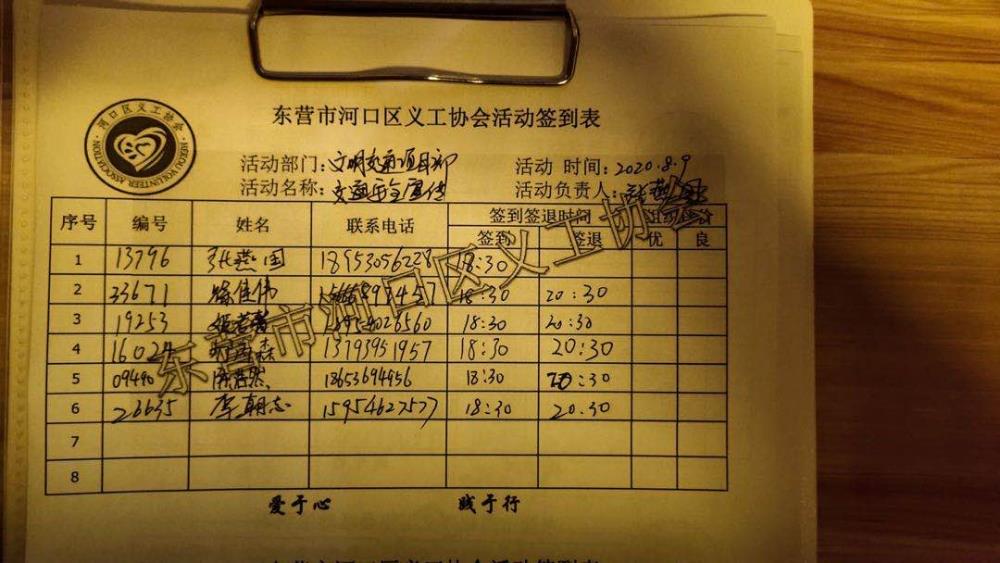 东营市河口区义工协会活动签到表
河口区义工协会
HEKOU VOLUNTEER ASSOCIATION
活动部门：文明交通项目部 活动 时间：2020.8.9
活动名称：交通安全宣传 活动负责人：张燕国
序号 编号 姓名 联系电话 签到签退时间
签到 签退 优 良
1 13796 张燕国 18953056228 18:30
2 33671 徐佳伟 18:30 20:30
3 19253 18:30 20:30
4 13793951957 18:30 20:30
5 09490 18653694956 18:30 20:30
6 26635 李朝志 15954627577 18:30 20.30
7
8
爱于心 贱于行
东营市河口区义工协会
东营市河口区义工协会活动签到表